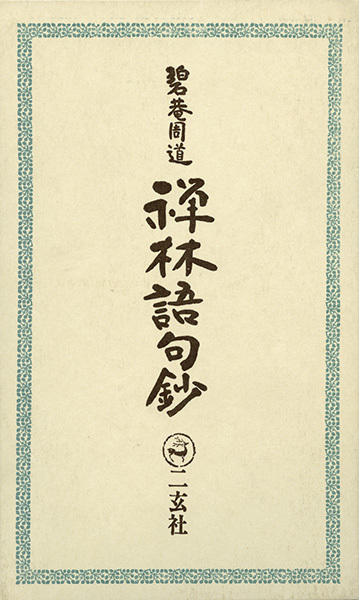 碧巷周道
禅林語句鈔
二玄社